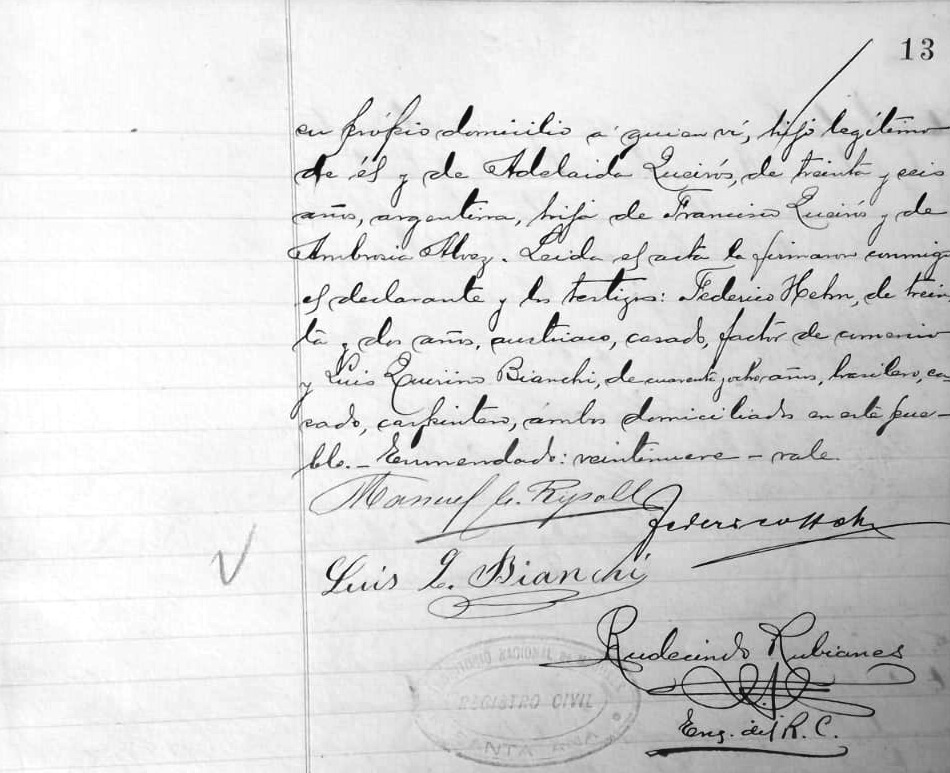 13
su própio domicilio á quien ví, hijo legítimo
de él y de Adelaida Queirós, de treinta y seis
años, argentina, hija de Francisco Queirós y de
Ambrosia Alvez. Leida el acta la firmaron conmigo
el declarante y los testigos: Federico Hehn, de trein
ta y dos años, austriaco, casado, factor de comercio
y Luis Quirino Bianchi, de cuarenta y ocho años, brasilero, ca
sado, carpintero, ambos domiciliados en este pue-
blo.- Enmendado: veintinueve - vale.
Manuel C.
Federico Hehn
Luis Q. Bianchi
Rudecindo Rubianes
Eng. del R. C.
NACIONAL DE
REGISTRO CIVIL
SANTA ANA